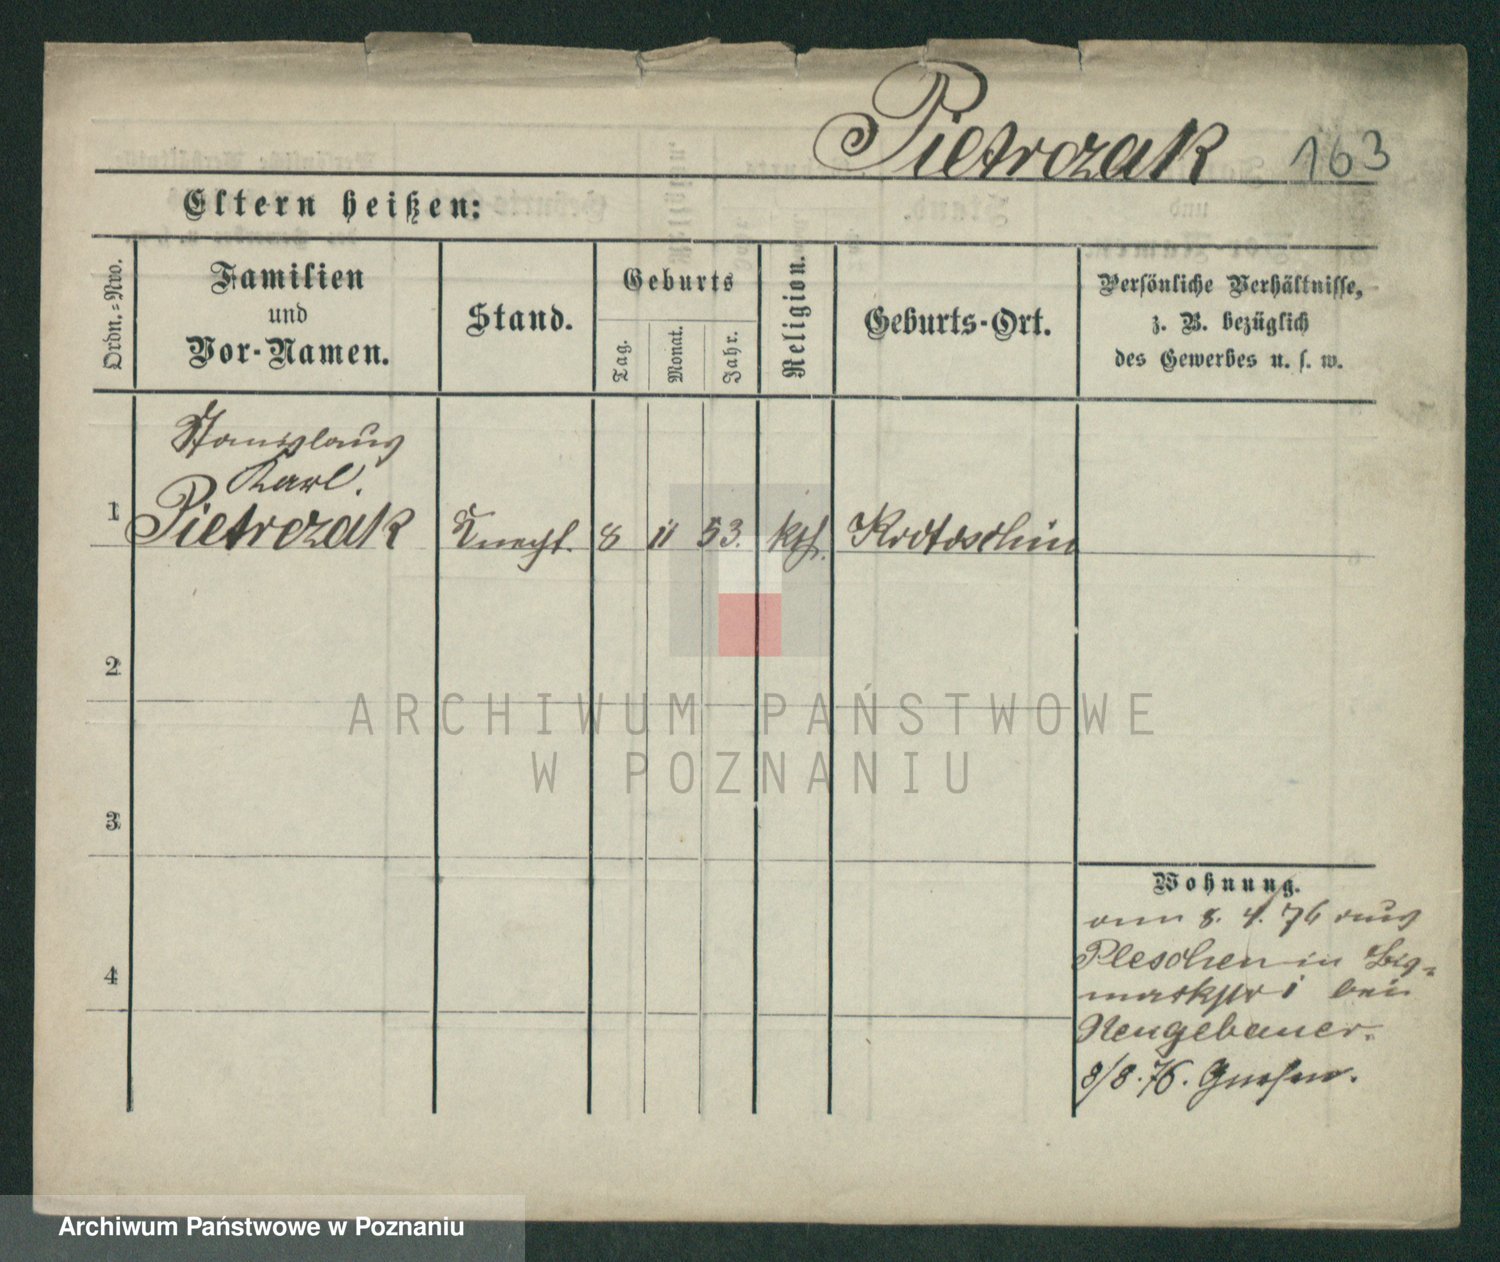 Pietrczak 163
Eltern heißen:
Ordn.=Nro.
Familien
und
Vor-Namen.
Stand.
Geburts
Tag.
Monat.
Jahr.
Religion.
Geburts-Ort.
Persönliche Verhältnisse,
z. B. bezüglich
des Gewerbes u. s. w.
Stanislaus
Karl.
1 Pietrczak Knecht. 8 11 53. kth. Krotoschin
2
3
4
Wohnung.
am 8. 4. 76 aus
Pleschen in
bei
Neugebauer.
8/8. 76. Gnesen.
ARCHIWUM PAŃSTWOWE
W POZNANIU
Archiwum Państwowe w Poznaniu